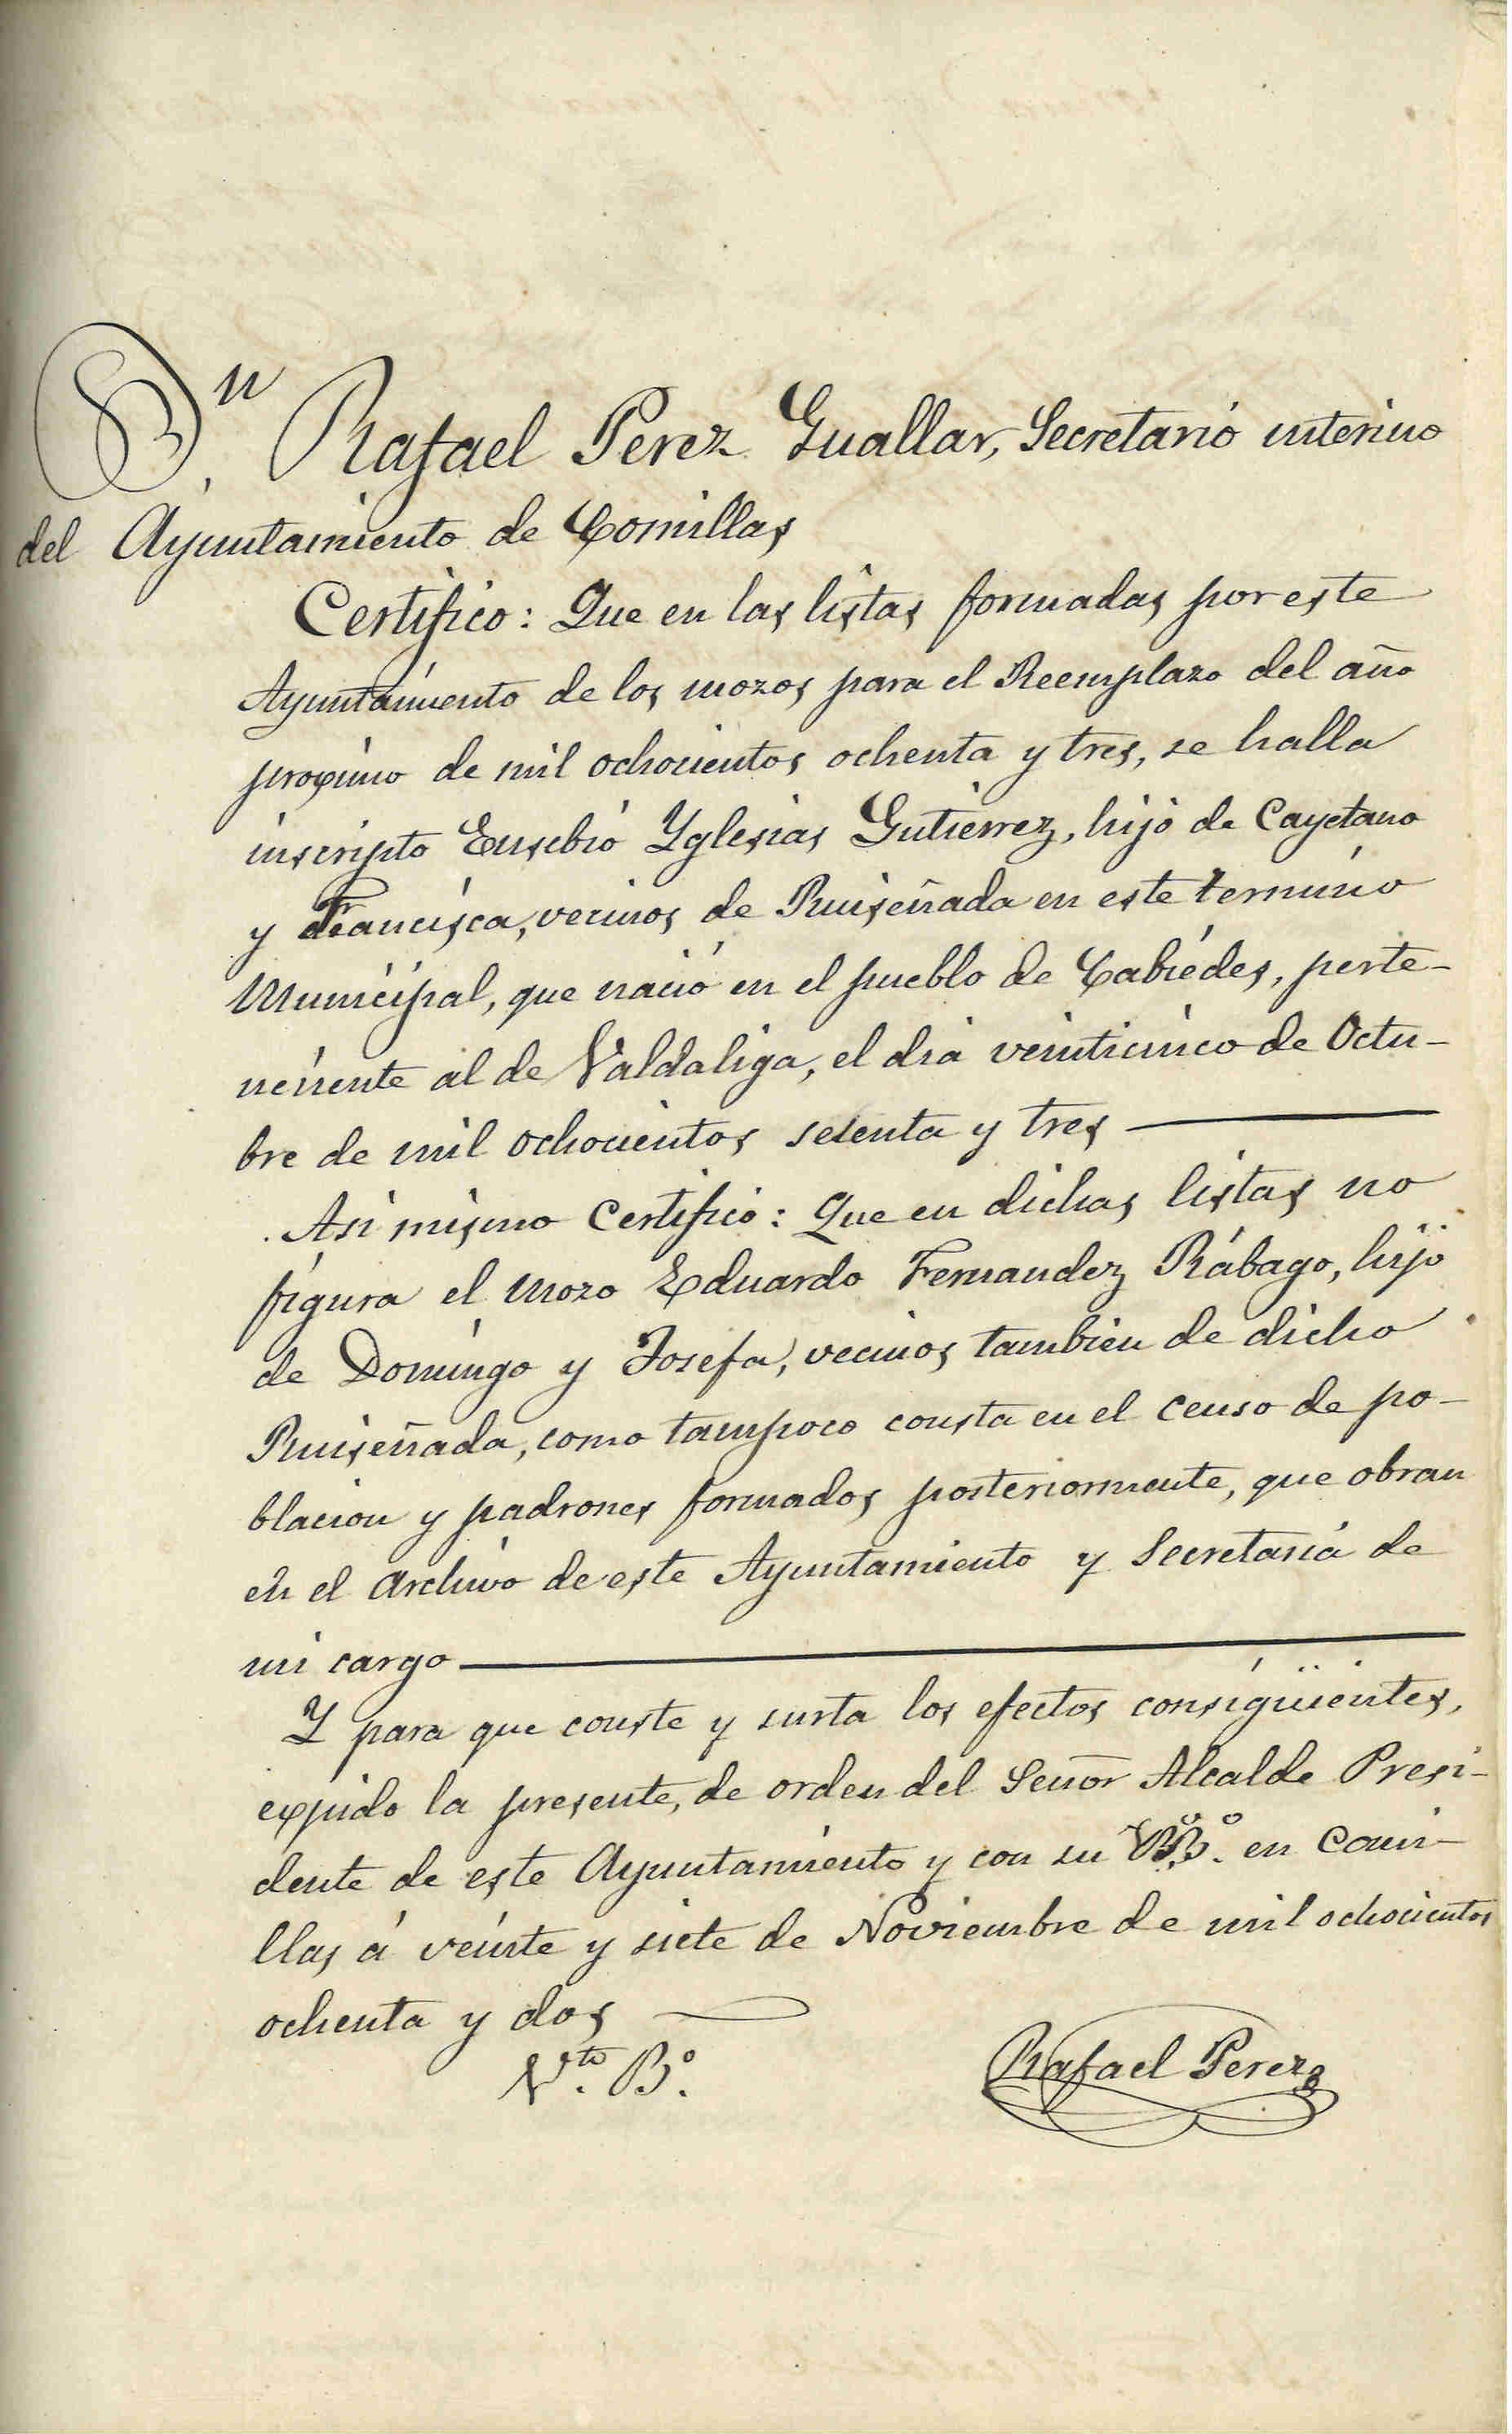 Dn. Rafael Perez Guallar, Secretario interino
del Ayuntamiento de Comillas
Certifico: Que en las listas formadas por este
Ayuntamiento de los mozos para el Reemplazo del año
proximo de mil ochocientos ochenta y tres, se halla
inscripto Eusebio Yglesias Gutierrez, hijo de Cayetano
y Francisca, vecinos de Ruiseñada en este termino
Municipal, que nació en el pueblo de Cabiédes, perte-
neciente al de Valdaliga, el dia veinticinco de Octu-
bre de mil ochocientos setenta y tres
Asi mismo Certifico: Que en dichas listas no
figura el mozo Eduardo Fernandez Rábago, hijo
de Domingo y Josefa, vecinos tambien de dicho
Ruiseñada, como tampoco consta en el censo de po-
blacion y padrones formados posteriormente, que obran
en el archivo de este Ayuntamiento y Secretaria de
mi cargo
Y para que conste y surta los efectos consigüientes,
expido la presente, de orden del Señor Alcalde Presi-
dente de este Ayuntamiento y con su VºBº. en Comi-
llas á veinte y siete de Noviembre de mil ochocientos
ochenta y dos
Vto. Bº.
Rafael Perez